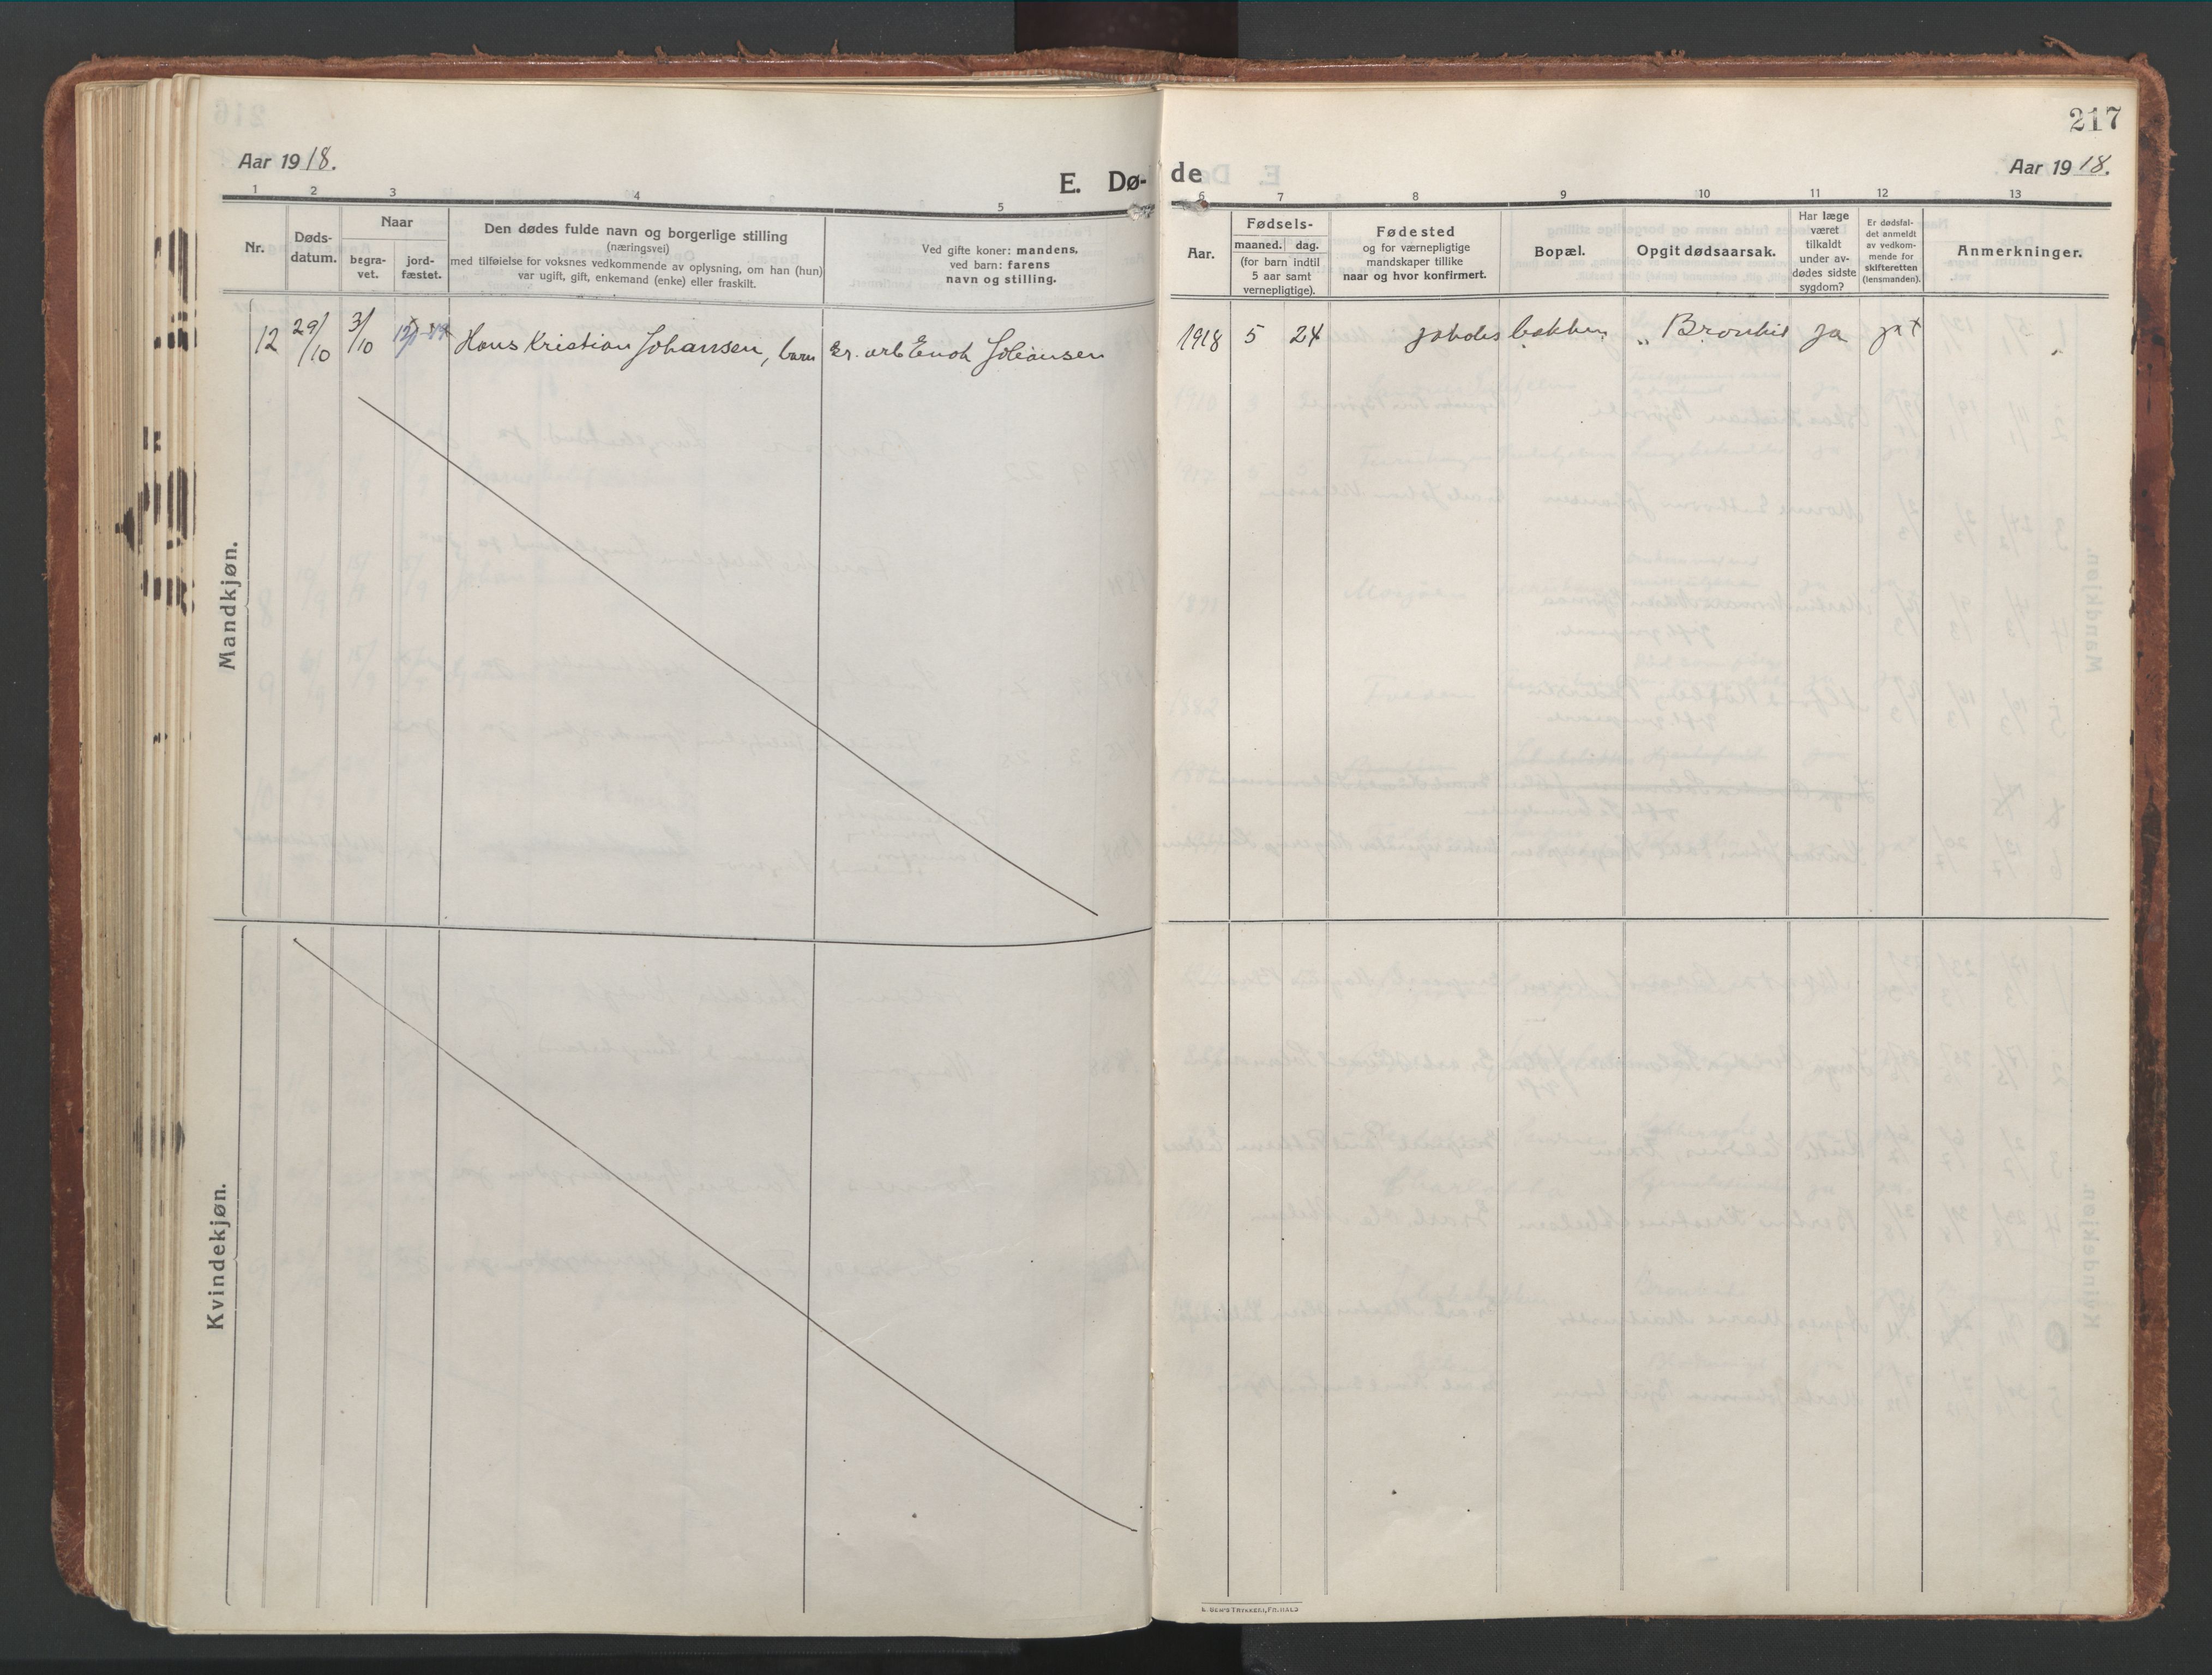 217
Aar 1918.
E. Dø-
de
Aar 1918.
1 2 3 4 5 6 7 8 9 10 11 12 13
Nr.
Døds-
datum.
Naar
begra-
vet.
jord-
fæstet.
Den dødes fulde navn og borgerlige stilling
(næringsvei)
med tilføielse for voksnes vedkommende av oplysning, om han (hun)
var ugift, gift, enkemand (enke) eller fraskilt.
Ved gifte koner: mandens.
ved barn: farens
navn og stilling.
Aar.
Fødsels-
maaned. dag.
(for barn indtil
5 aar samt
vernepligtige).
Fødested
og for værnepligtige
mandskaper tillike
naar og hvor konfirmert.
Bopæl.
Opgit dødsaarsak.
Har læge
været
tilkaldt
under av-
dødes sidste
sygdom?
Er dødsfal-
det anmeldt
av vedkom-
mende for
skifteretten
(lensmanden).
Anmerkninger.
12 29/10 3/10 Hans Kristian Johansen, barn Gr. arb Enok Johansen 1918 5 24 bakken „ Bronkit ja ja +
Mandkjøn.
Kvindekjøn.